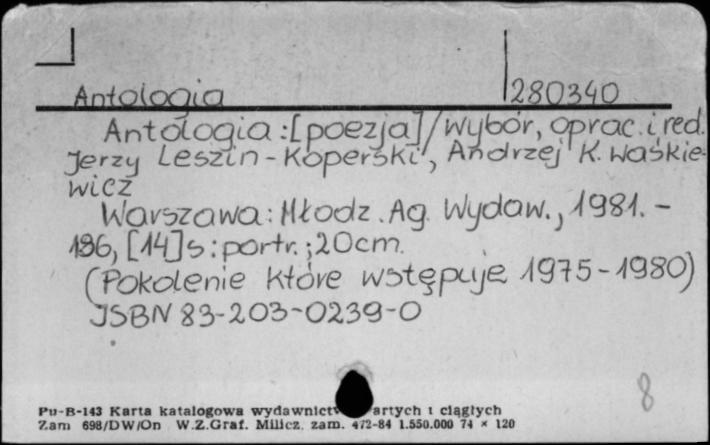 Antologia 280340
Antologia : [poezja] / wybór, oprac. i red.
Jerzy Leszin-Koperski, Andrzej K. Waśkie-
wicz
Warszawa : Młodz. Ag. Wydaw., 1981. -
196, [14] s : portr. ; 20 cm.
(Pokolenie które wstępuje 1975-1980)
ISBN 83-203-0239-0
8
Pu-B-143 Karta katalogowa wydawnictw artych i ciągłych
Zam 698/DW/On W.Z.Graf. Milicz. zam. 472-84 1.550.000 74 × 120